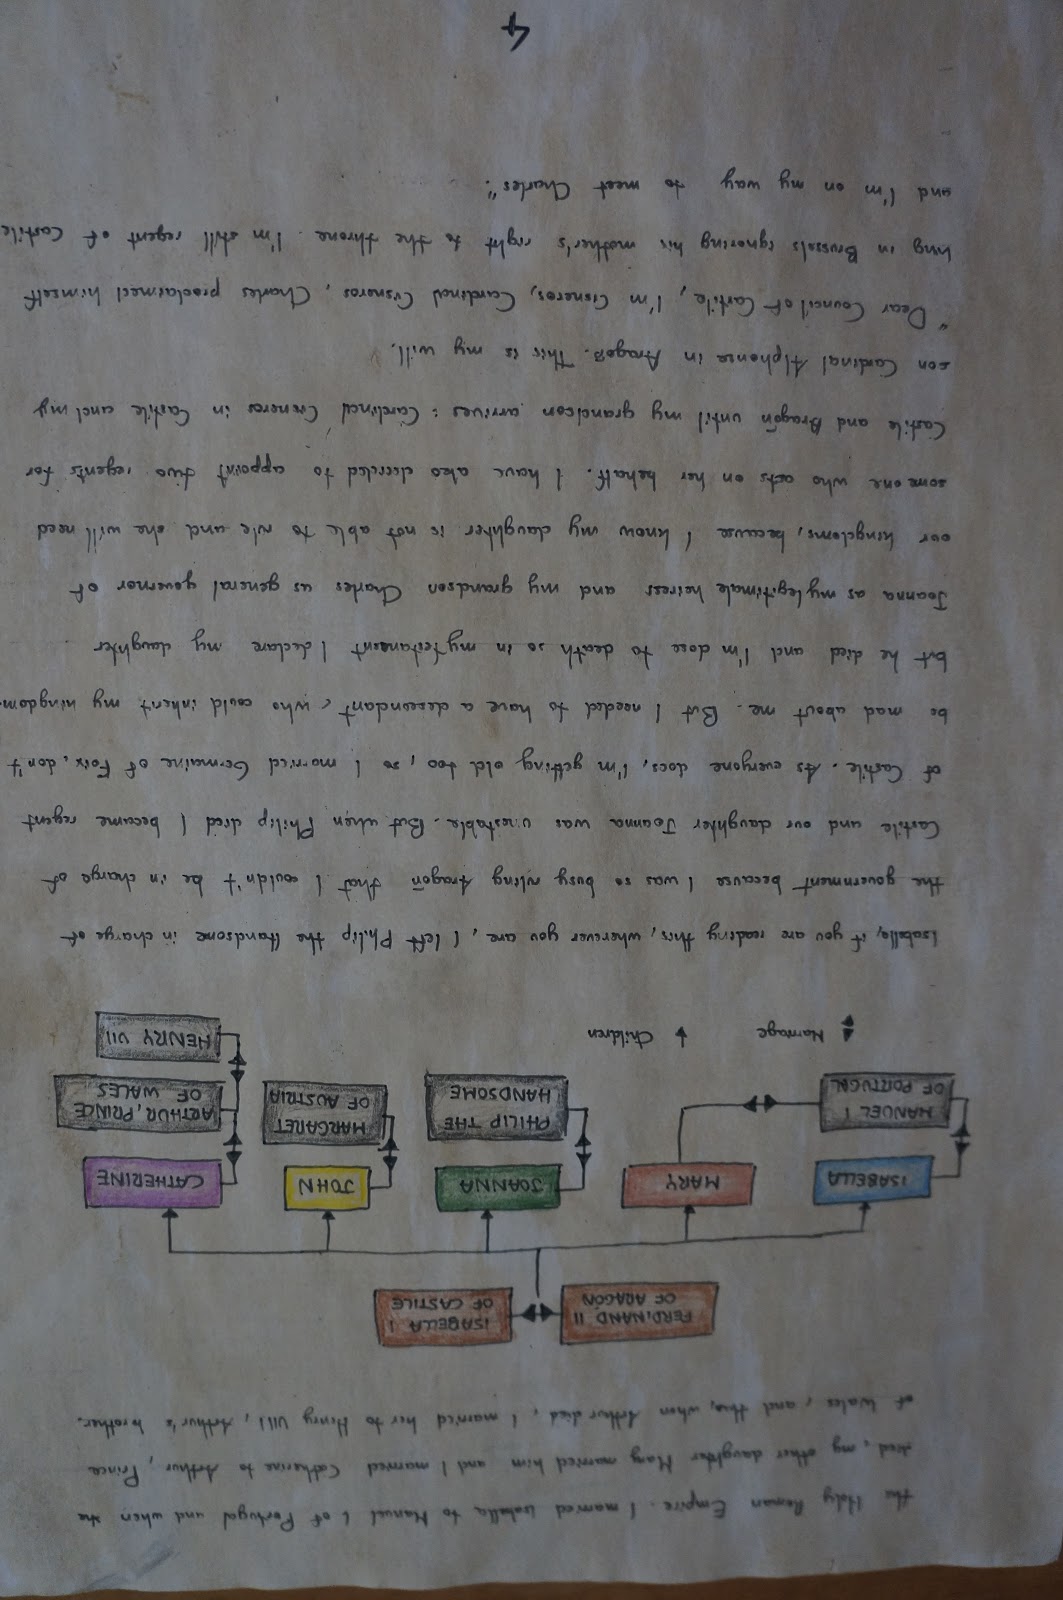 the Holy Roman Empire. I married Isabella to Manuel I of Portugal and when she
died, my other daughter Mary married him and I married Catherine to Arthur, Prince
of Wales, and then, when Arthur died, I married her to Henry VIII, Arthur's brother.
FERDINAND II OF ARAGON
ISABELLA I OF CASTILE
ISABELLA
MARY
JOANNA
JOHN
CATHERINE
MANUEL I OF PORTUGAL
PHILIP THE HANDSOME
MARGARET OF AUSTRIA
ARTHUR, PRINCE OF WALES
HENRY VII
Marriage
Children
Isabella, if you are reading this, wherever you are, I left Philip the Handsome in charge of
the government because I was so busy ruling Aragon that I couldn't be in charge of
Castile and our daughter Joanna was unestable. But when Philip died I became regent
of Castile. As everyone does, I'm getting old too, so I married Germaine of Foix, don't
be mad about me. But I needed to have a descendant, who could inherit my kingdom
but he died and I'm close to death so in my testament I declare my daughter
Joanna as my legitimate heiress and my grandson Charles as general governor of
our kingdoms, because I know my daughter is not able to rule and she will need
someone who acts on her behalf. I have also decided to appoint two regents for
Castile and Aragon until my grandson arrives: Cardinal Cisneros in Castile and my
son Cardinal Alphonse in Aragon. This is my will.
"Dear Council of Castile, I'm Cisneros, Cardinal Cisneros, Charles proclaimed himself
king in Brussels ignoring his mother's right to the throne. I'm still regent of Castile
and I'm on my way to meet Charles".
4